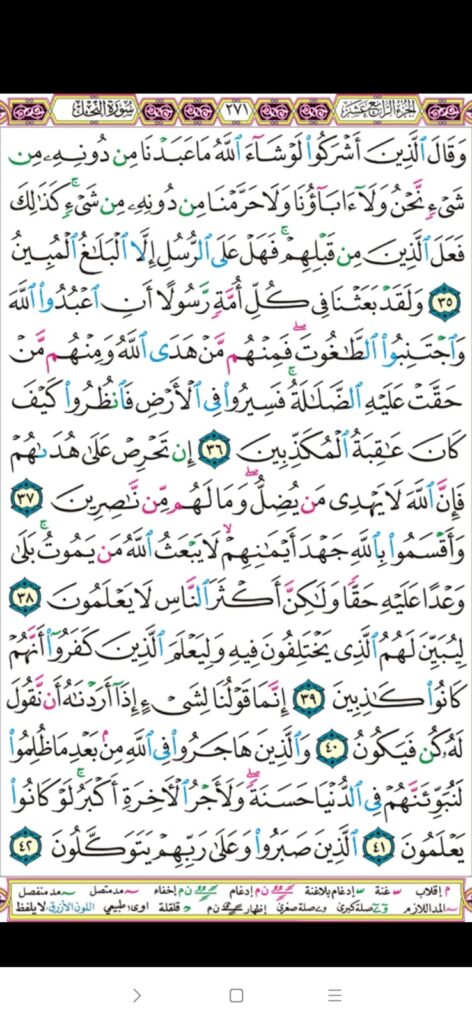 سُورَةُ النَّحْل ٢٧١ الجُزءُ الرَّابِعُ عَشَرَ
وَقَالَ ٱلَّذِينَ أَشْرَكُوا۟ لَوْ شَآءَ ٱللَّهُ مَا عَبَدْنَا مِن دُونِهِۦ مِن
شَىْءٍ نَّحْنُ وَلَآ ءَابَآؤُنَا وَلَا حَرَّمْنَا مِن دُونِهِۦ مِن شَىْءٍ ۚ كَذَٰلِكَ
فَعَلَ ٱلَّذِينَ مِن قَبْلِهِمْ ۚ فَهَلْ عَلَى ٱلرُّسُلِ إِلَّا ٱلْبَلَٰغُ ٱلْمُبِينُ
٣٥ وَلَقَدْ بَعَثْنَا فِى كُلِّ أُمَّةٍ رَّسُولًا أَنِ ٱعْبُدُوا۟ ٱللَّهَ
وَٱجْتَنِبُوا۟ ٱلطَّٰغُوتَ ۖ فَمِنْهُم مَّنْ هَدَى ٱللَّهُ وَمِنْهُم مَّنْ
حَقَّتْ عَلَيْهِ ٱلضَّلَٰلَةُ ۚ فَسِيرُوا۟ فِى ٱلْأَرْضِ فَٱنظُرُوا۟ كَيْفَ
كَانَ عَٰقِبَةُ ٱلْمُكَذِّبِينَ ٣٦ إِن تَحْرِصْ عَلَىٰ هُدَىٰهُمْ
فَإِنَّ ٱللَّهَ لَا يَهْدِى مَن يُضِلُّ ۖ وَمَا لَهُم مِّن نَّٰصِرِينَ ٣٧
وَأَقْسَمُوا۟ بِٱللَّهِ جَهْدَ أَيْمَٰنِهِمْ ۙ لَا يَبْعَثُ ٱللَّهُ مَن يَمُوتُ ۚ بَلَىٰ
وَعْدًا عَلَيْهِ حَقًّا وَلَٰكِنَّ أَكْثَرَ ٱلنَّاسِ لَا يَعْلَمُونَ ٣٨
لِيُبَيِّنَ لَهُمُ ٱلَّذِى يَخْتَلِفُونَ فِيهِ وَلِيَعْلَمَ ٱلَّذِينَ كَفَرُوٓا۟ أَنَّهُمْ
كَانُوا۟ كَٰذِبِينَ ٣٩ إِنَّمَا قَوْلُنَا لِشَىْءٍ إِذَآ أَرَدْنَٰهُ أَن نَّقُولَ
لَهُۥ كُن فَيَكُونُ ٤٠ وَٱلَّذِينَ هَاجَرُوا۟ فِى ٱللَّهِ مِنۢ بَعْدِ مَا ظُلِمُوا۟
لَنُبَوِّئَنَّهُمْ فِى ٱلدُّنْيَا حَسَنَةً ۖ وَلَأَجْرُ ٱلْءَاخِرَةِ أَكْبَرُ ۚ لَوْ كَانُوا۟
يَعْلَمُونَ ٤١ ٱلَّذِينَ صَبَرُوا۟ وَعَلَىٰ رَبِّهِمْ يَتَوَكَّلُونَ ٤٢
م إقلاب س غنة س إدغام بلاغنة ن م إدغام ن م إخفاء مد متصل مد منفصل
المد اللازم صلة كبرى صلة صغرى إظهار ن م قلقلة اوى طبيعي اللون الأزرق لا يلفظ